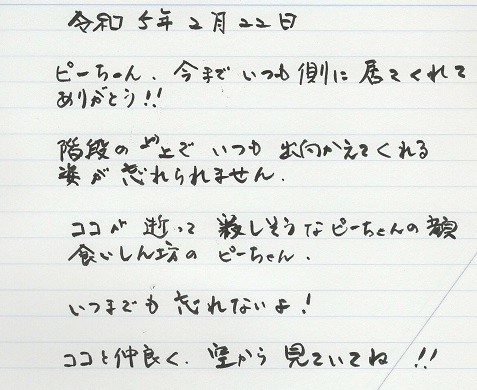 令和5年2月22日
ピーちゃん、今までいつも側に居てくれて
ありがとう!!
階段の上でいつも出向かえてくれる
姿が忘れられません.
ココが逝って寂しそうなピーちゃんの顔
食いしん坊のピーちゃん.
いつまでも忘れないよ!
ココと仲良く、空から見ていてね!!